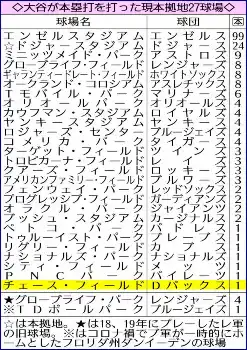 ◇大谷が本塁打を打った現本拠地27球場◇
球場名 球団 本
エンゼルスタジアム エンゼルス 99
☆ドジャースタジアム ドジャース 24
ミニッツメイド・パーク アストロズ 9
グローブライフ・フィールド レンジャーズ 8
ギャランティードレート・フィールド ホワイトソックス 8
オークランド・コロシアム アスレチックス 8
Tモバイル・パーク マリナーズ 6
オリオールパーク オリオールズ
カウフマン・スタジアム ロイヤルズ
ヤンキースタジアム ヤンキース
ロジャーズ・センター ブルージェイズ
コメリカ・パーク タイガース
ターゲット・フィールド ツインズ
トロピカーナ・フィールド レイズ
クアーズ・フィールド ロッキーズ
アメリカンファミリー・フィールド ブルワーズ
フェンウェイ・パーク レッドソックス
プログレッシブ・フィールド ガーディアンズ
オラクル・パーク ジャイアンツ
ブッシュ・スタジアム カージナルス
ペトコ・パーク パドレス
トゥルーイスト・パーク ブレーブス
リグリー・フィールド カブス
ナショナルズ・パーク ナショナルズ 1
シティ・フィールド メッツ 1
PNCパーク パイレーツ 1
チェース・フィールド Dバックス 1
★グローブライフ・パーク レンジャーズ 4
※TDボールパーク ブルージェイズ 1
☆は本拠地。★は18、19年にプレーしたレ軍
の旧球場。※はコロナ禍でブ軍が一時的にホ
ームとしたフロリダ州ダンイーデンの球場